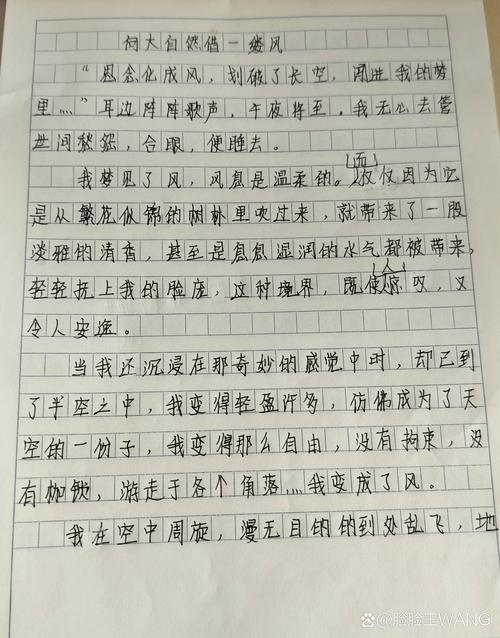 向大自然借一缕风
“思念化成风，划破了长空，闯进我的梦
里……”耳边阵阵歌声，午夜将至。我无心去管
世间愁怨，合眼，便睡去。
我梦见了风，风息是温柔的。而仅仅因为它
是从繁花似锦的树林里吹过来，就带来了一股
淡雅的清香，甚至是息息湿润的水气都被带来，
轻轻抚上我的脸庞，这种境界，既使人惊叹，又
令人安逸。
当我还沉浸在那奇妙的感觉中时，却已到
了半空之中，我变得轻盈许多，仿佛成为了天
空的一份子，我变得那么自由，没有拘束，没
有枷锁，游走于各个角落……我变成了风。
我在空中周旋，漫无目的的到处乱飞，地
百家号/脸脸王WANG